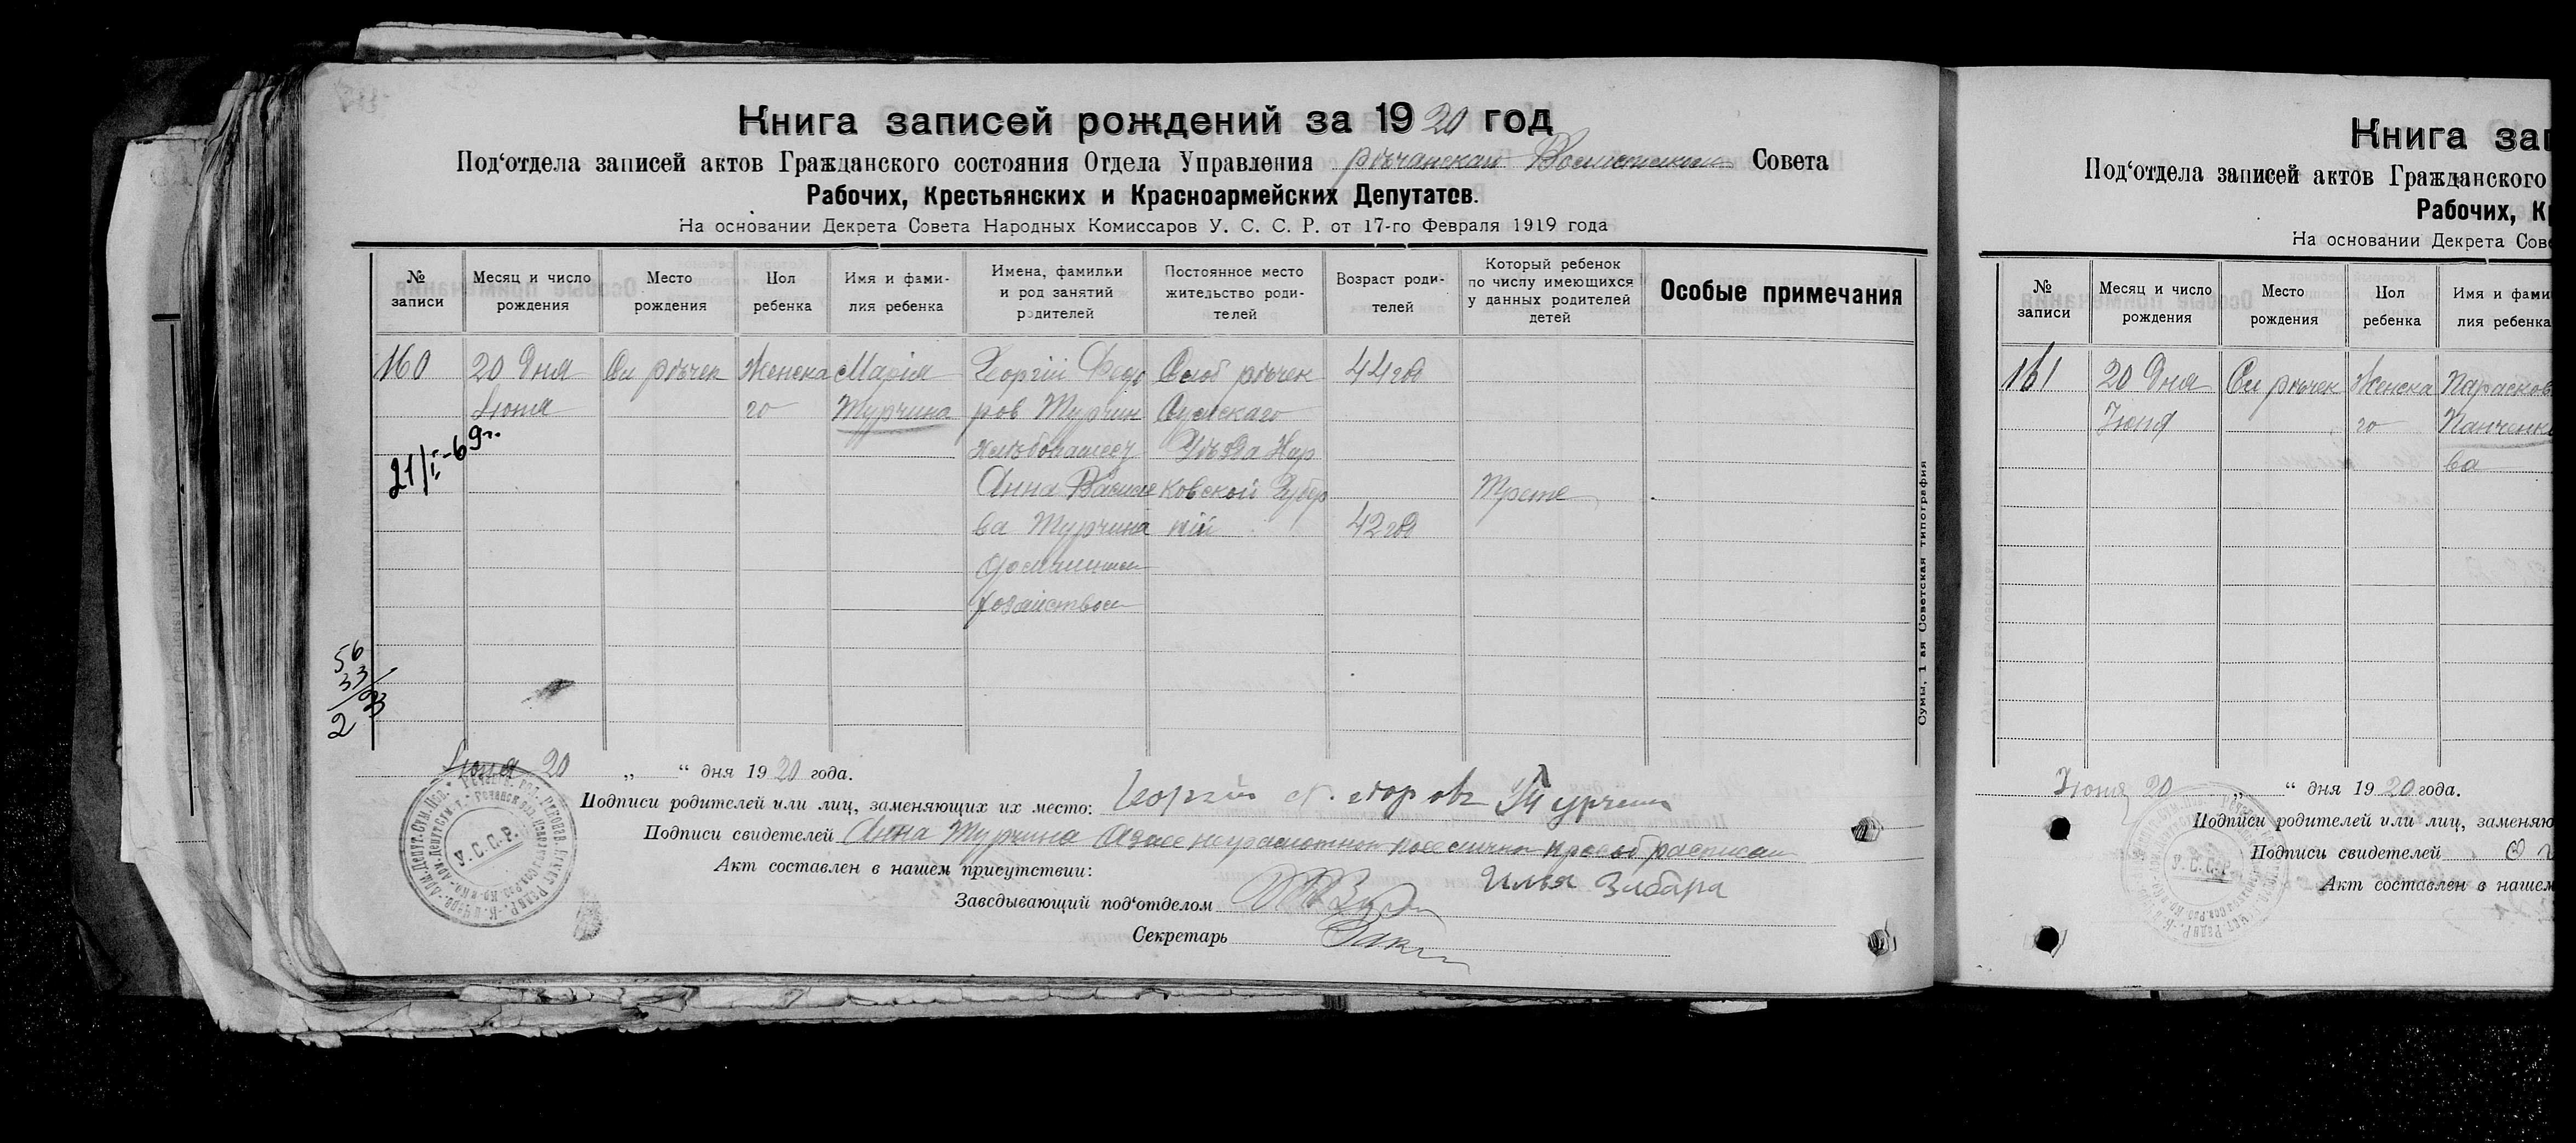 Книга записей рождений за 1920 год
Под‘отдела записей актов Гражданского состояния Отдела Управления Совета
Рабочих, Крестьянских и Красноармейских Депутатов.
На основании Декрета Совета Народных Комиссаров У. С. С. Р. от 17-го Февраля 1919 года
№ записи
Месяц и число рождения
Место рождения
Пол ребенка
Имя и фами-
лия ребенка
Имена, фамилии
и род занятий
родителей
Постоянное место
жительство роди-
телей
Возраст роди-
телей
Который ребенок
по числу имеющихся
у данных родителей
детей
Особые примечания
160
20 дня
Июня
Сл Рѣчек
Женска
го
Марія
Турчина
Георгій Федо
ров Турчин
Анна
ва Турчина
хозяйством
Слоб Рѣчек
Сумскаго
Уѣзда Хар
ковской Губер
ніи
44 год
42 год
Трете
21/I-69г.
56
33
2
93
Сумы, 1 ая Советская типография
Июня 20 „ “ дня 1920 года.
Подписи родителей или лиц, заменяющих их место: Георгій Турчин
Подписи свидетелей Анна Турчина
Акт составлен в нашем присутствии: Илья
Заведывающий под‘отделом
Секретарь
У.С.С.Р.
Книга зап
Под‘отдела записей актов Гражданского
Рабочих, Кр
На основании Декрета Сове
№ записи
Месяц и число рождения
Место рождения
Пол ребенка
Имя и фами
лия ребенка
161
20 дня
Июня
Сл Рѣчек
Женска
го
Парасков
Панченко
ва
Июня 20 „ “ дня 1920 года.
Подписи родителей или лиц, заменяю
Подписи свидетелей
Акт составлен в нашем